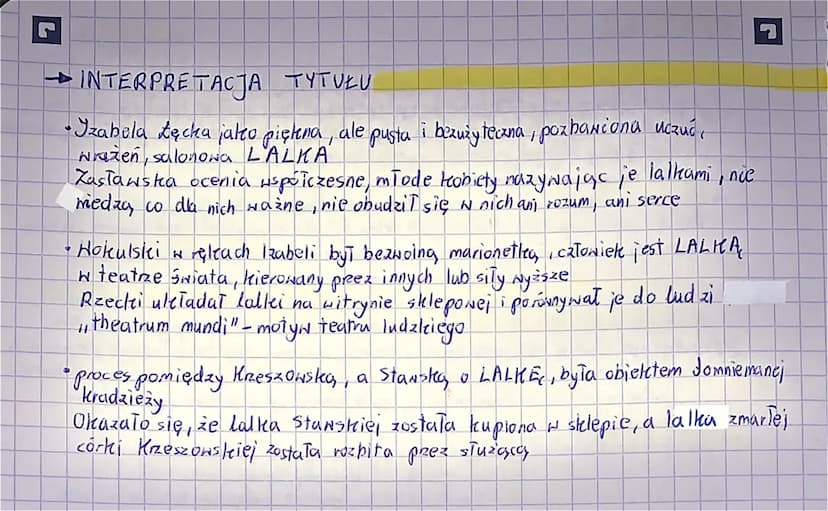 → INTERPRETACJA TYTUŁU
• Izabela Łęcka jako piękna, ale pusta i bezużyteczna, pozbawiona uczuć,
wrażeń, salonowa LALKA
Zasławska ocenia współczesne, młode kobiety nazywając je lalkami, nie
wiedzą co dla nich ważne, nie obudził się w nich ani rozum, ani serce
• Wokulski w rękach Izabeli był bezwolną marionetką, człowiek jest LALKĄ
w teatrze świata, kierowany przez innych lub siły wyższe
Rzecki układał lalki na witrynie sklepowej i porównywał je do ludzi
„theatrum mundi" - motyw teatru ludzkiego
• proces pomiędzy Krzeszowską, a Stawską o LALKĘ, była obiektem domniemanej
kradzieży
Okazało się, że lalka Stawskiej została kupiona w sklepie, a lalka zmarłej
córki Krzeszowskiej została rozbita przez służącą